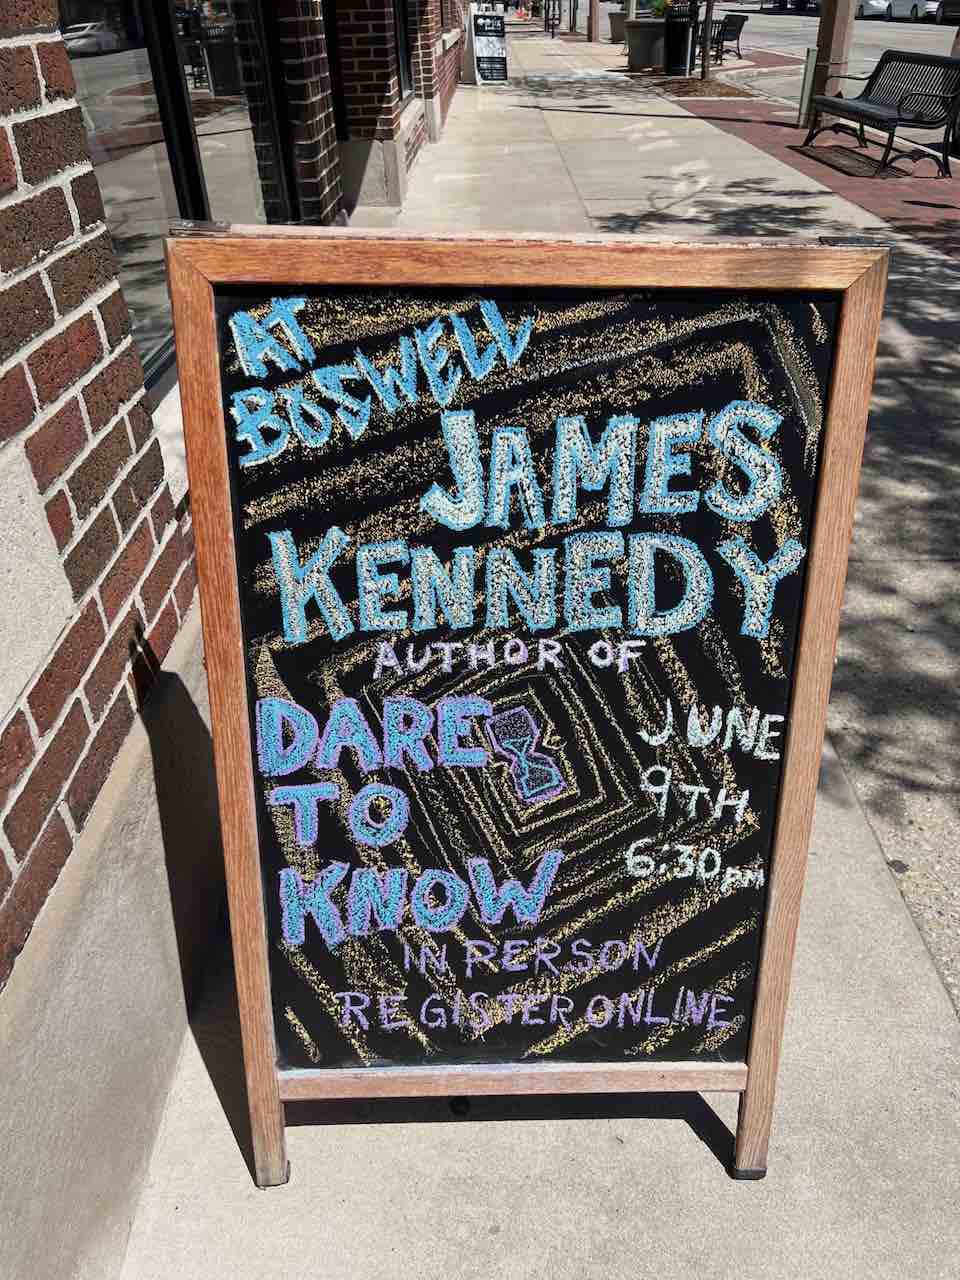 AT
BOSWELL
JAMES
KENNEDY
AUTHOR OF
DARE
TO
KNOW
JUNE
9TH
6:30pm
IN PERSON
REGISTER ONLINE